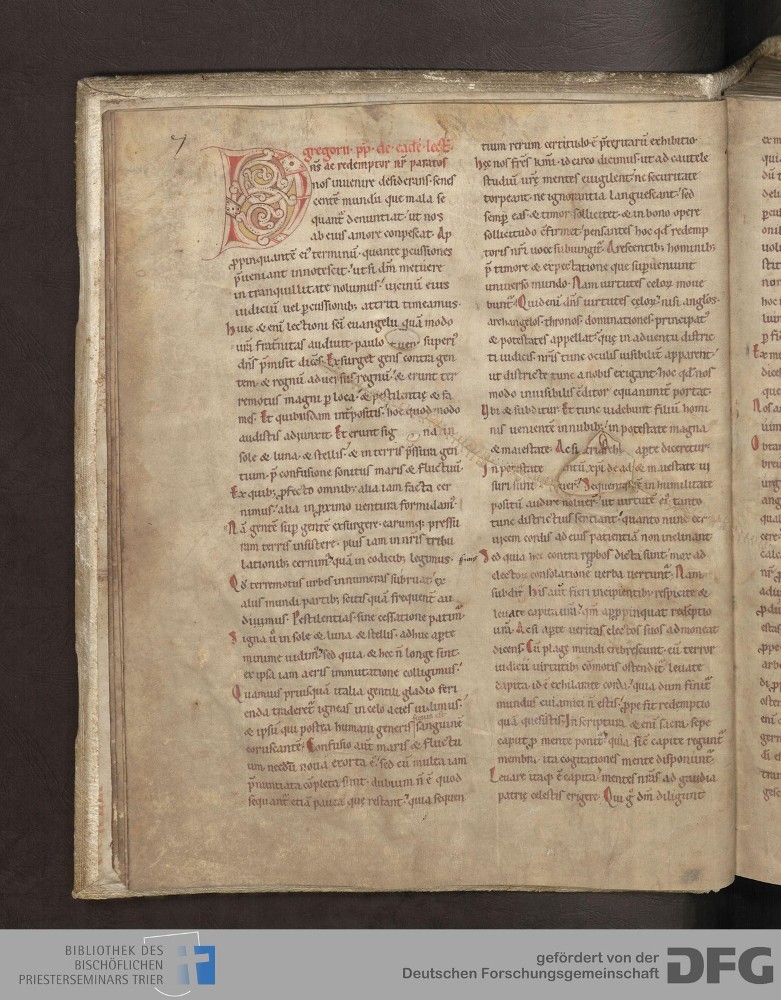 gregorii · pp · de · eadē · lect
nŝ ac redemptor nr̄ paratos
nos invenire desiderans · senes
centē mundū que mala se
quant᷑ denuntiat · ut nos
ab eius amore conpescat · Ap
propinquantē ei᷒ terminū · quantę pcussiones
pveniant innotescit · ut si dm̄ metuere
in tranquillitate nolumus · vicinū eius
iudiciū vel pcussionib; attriti timeamus ·
Huic & enī lectioni sc̄i evangelii quā modo
vr̄a frat̄nitas audivit · paulo superi᷒
dn̄s p̄misit dicēs · Exsurget gens contra gen
tem · & regnū adversus regnū · & erunt ter
remotus magni p loca · & pestilentię & fa
mes · Et quibusdam int̄positis · hoc quod modo
audistis adjunxit · Et erunt sig na in
sole & luna · & stellis · & in terris p̄ssura gen
tium · p̄ confusione sonitus maris & fluctuū ·
Ex quib; pfecto omnib; alia iam facta cer
nimus · alia in proximo ventura formidam᷒ ·
Nā gentē sup gentē exsurgere · earumq; pressu
ram terris insistere · plus iam in nr̄is tribu
lationib; cernim᷒ quā in codicib; legimus ·
Qd̄ terremotus urbes innumeras subruat · ex
aliis mundi partib; scitis quā frequent̄ au
divimus · Pestilentias sine cessatione patim᷒
Signa v̊ in sole & luna & stellis · adhuc apte
minime vidim᷒ · sed quia & hec n̄ longe sint ·
ex ipsa iam aeris immutatione colligimus ·
Quamvis priusquā italia gentili gladio feri
enda traderet᷑ igneas in celo acies vidimus ·
& ipsū qui postea humani generis sanguinē
coruscantē · Confusio aut̄ maris & fluctu
um necdū nova exorta ē · sed cū multa iam
p̄nuntiata cōpleta sint · dubium n̄ ē quod
sequant᷑ etiā pauca que restant · quia sequen
tium rerum certitudo ē p̄teritarū exhibitio ·
Hec nos fr̄es km̄i · idcirco dicimus · ut ad cautele
studiū vr̄ę mentes evigilent · ne securitate
torpeant · ne ignorantia languescant · sed
semp eas & timor sollicitet · & in bono opere
sollicitudo cōfirmet · pensantes hoc qd̄ redemp
toris nr̄i voce subiungit᷑ · Arescentib; hominib;
p̄ timore & expectatione que supveniunt
universo mundo · Nam virtutes celoꝝ move
bunt᷑ · Quid enī dn̄s virtutes celoꝝ · nisi anglos ·
archangelos · thronos · dominationes · principat᷒
& potestates appellat · quę in adventu distric
ti iudicis nr̄is tunc oculis visibilit̄ apparent ·
ut districte tunc a nobis exigant · hoc qd̄ nos
modo invisibilis cōditor equanimit̄ portat ·
Ubi & subditur · Et tunc videbunt filiū homi
nis venientē in nubib; · in potestate magna
& maiestate · Ac si apte diceretur
In potestate & maiestate vi
suri sunt · in humilitate
positū audire noluer̄ · ut virtutē ei᷒ tanto
tunc districtius sentiant · quanto nunc cer
vicem cordis ad eius patientiā non inclinant
Sed quia hec contra reprobos dicta sunt · mox ad
electoꝝ consolatione verba vertunt᷑ · Nam
subdit᷑ · His aut̄ fieri incipientib; · respicite &
levate capita vr̄a · qm̄ appropinquat redēptio
vr̄a · Ac si apte veritas electos suos admoneat
dicens · Cū plagę mundi crebrescunt · cū terror
iudicii virtutib; cōmotis ostendit᷑ · levate
capita · id ē exhilarate corda · quia dum finit᷑
mundus cui amici n̄ estis · ppe fit redemptio
quā quesistis · In scriptura & enī sacra · sepe
caput p mente ponit᷑ · quia sic̄ capite regunt᷑
membra · ita cogitationes mente disponunt᷑ ·
Levare itaq; ē capita · mentes nr̄as ad gaudia
patrię celestis erigere · Qui g̊ dm̄ diligunt
BIBLIOTHEK DES
BISCHÖFLICHEN
PRIESTERSEMINARS TRIER
gefördert von der
Deutschen Forschungsgemeinschaft
DFG